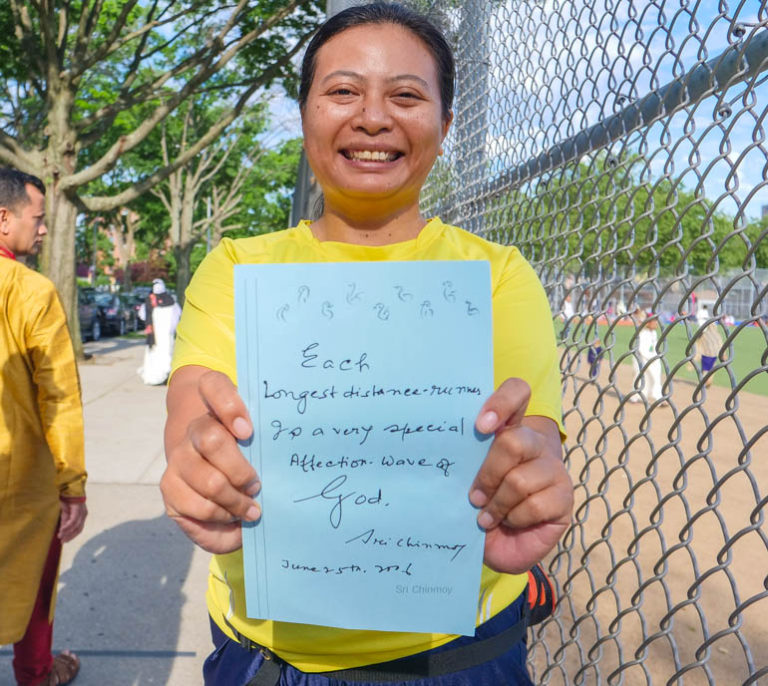 Each
Longest distance-runner
Is a very special
Affection-Wave of
God.
Sri Chinmoy
June 25th. 2006
Sri Chinmoy